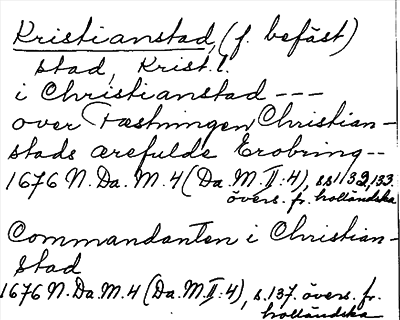 Kristianstad, (f. befäst)
stad, Krist. l.
i Christianstad ---
over Fæstningen Christian-
stads ærefulde Erobring--
1676 N. Da. M. 4 (Da. M. II:4), s.s 132, 133.
övers. fr. holländska
Commandanten i Christian-
stad
1676 N. Da. M. 4 (Da. M. II:4), s. 137. övers. fr.
holländska